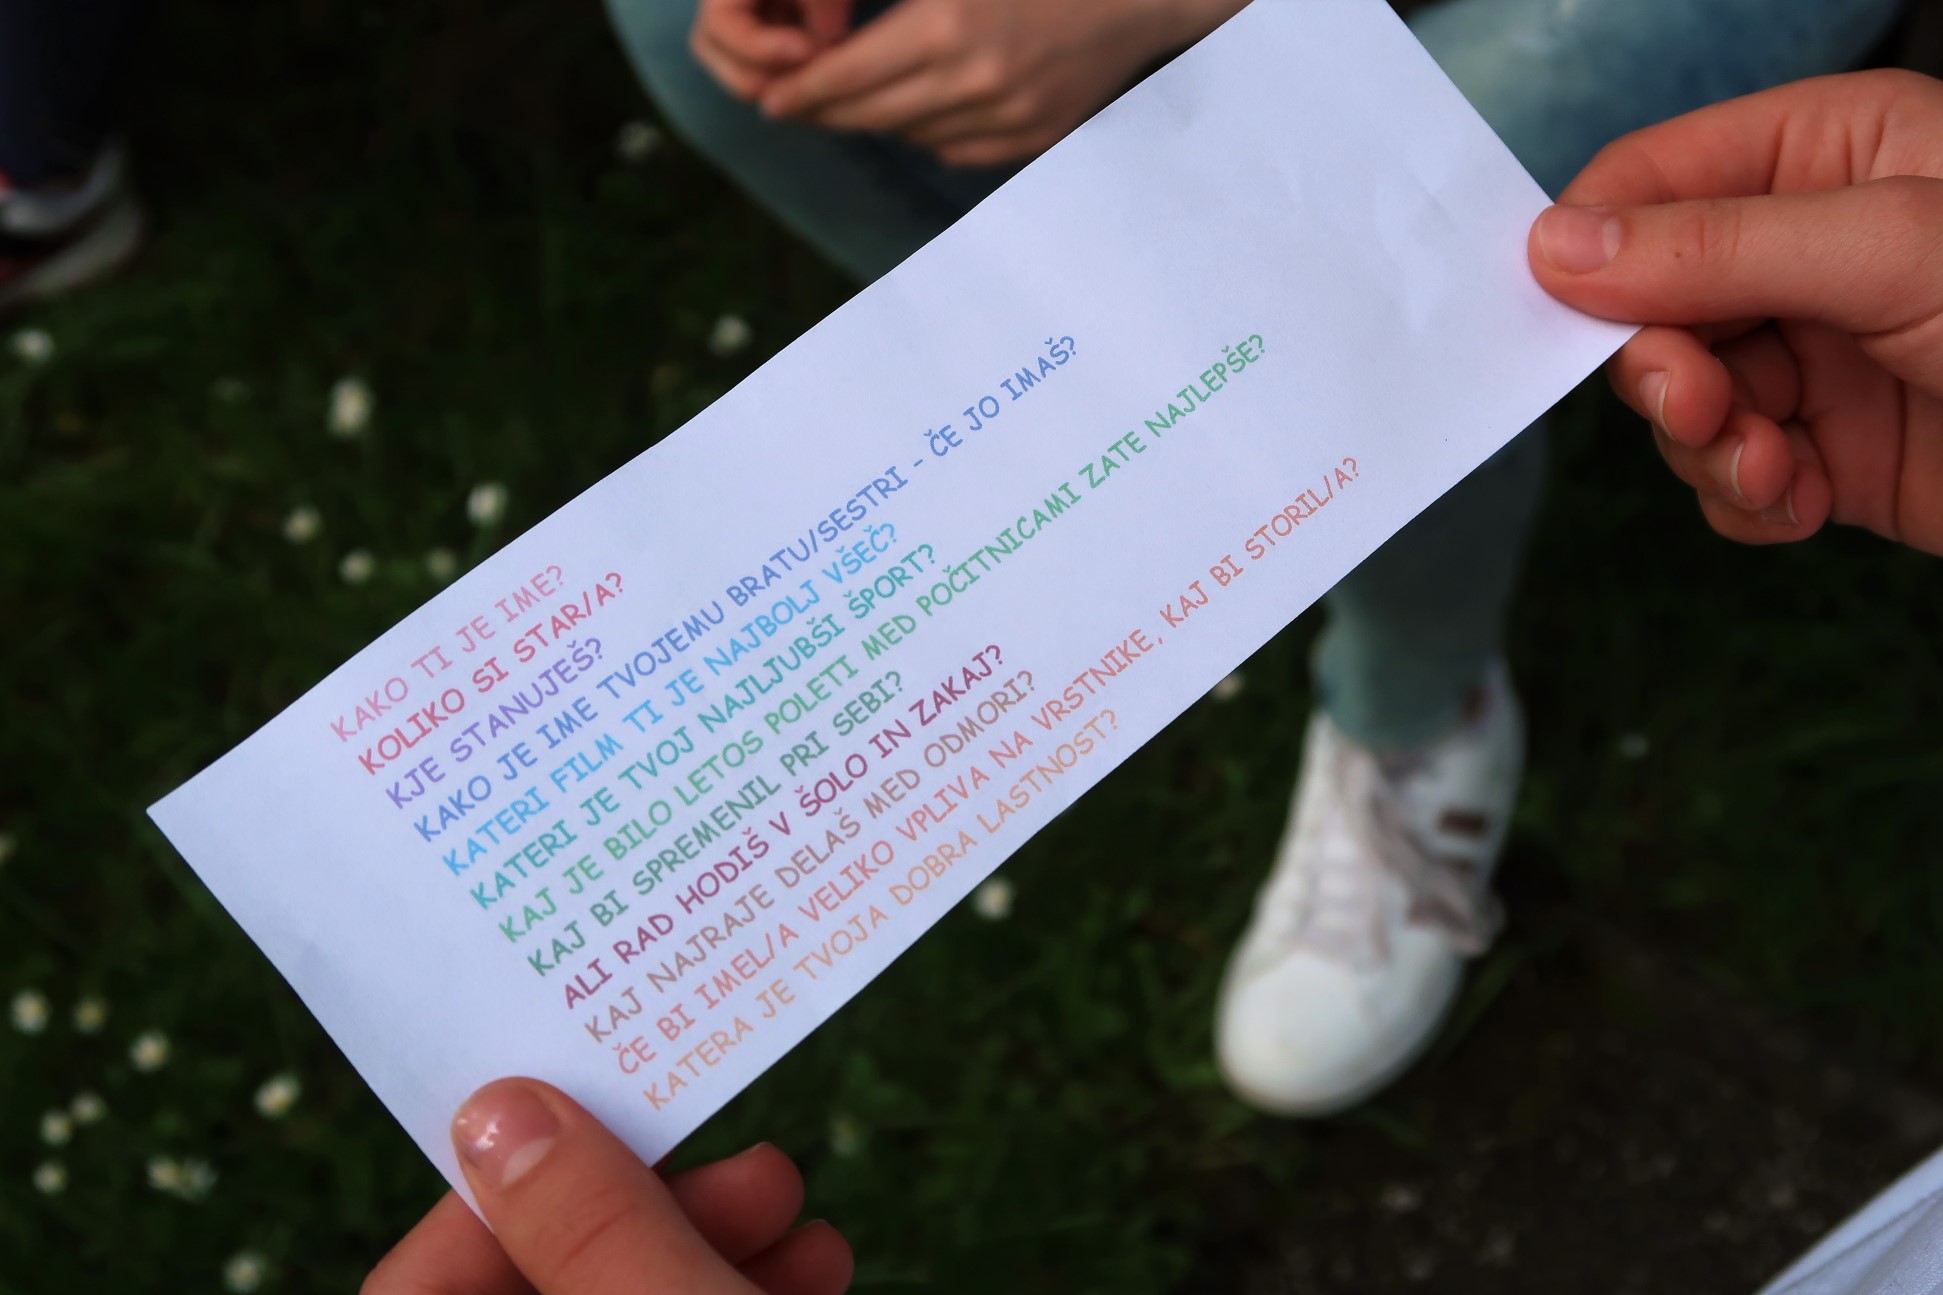 KAKO TI JE IME?
KOLIKO SI STAR/A?
KJE STANUJEŠ?
KAKO JE IME TVOJEMU BRATU/SESTRI - ČE JO IMAŠ?
KATERI FILM TI JE NAJBOLJ VŠEČ?
KATERI JE TVOJ NAJLJUBŠI ŠPORT?
KAJ JE BILO LETOS POLETI MED POČITNICAMI ZATE NAJLEPŠE?
KAJ BI SPREMENIL PRI SEBI?
ALI RAD HODIŠ V ŠOLO IN ZAKAJ?
KAJ NAJRAJE DELAŠ MED ODMORI?
ČE BI IMEL/A VELIKO VPLIVA NA VRSTNIKE, KAJ BI STORIL/A?
KATERA JE TVOJA DOBRA LASTNOST?